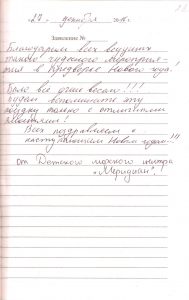 "27" декабря
Заявление №
Благодарим всех ведущих
такого чудесного мероприя-
тия в Преддверье Нового года!
Было все очень весело!!!
Будем вспоминать эту
только с отличными
эмоциями!
Всех поздравляем с
наступающим Новым годом!!!
от Детского морского центра
«Меридиан»!